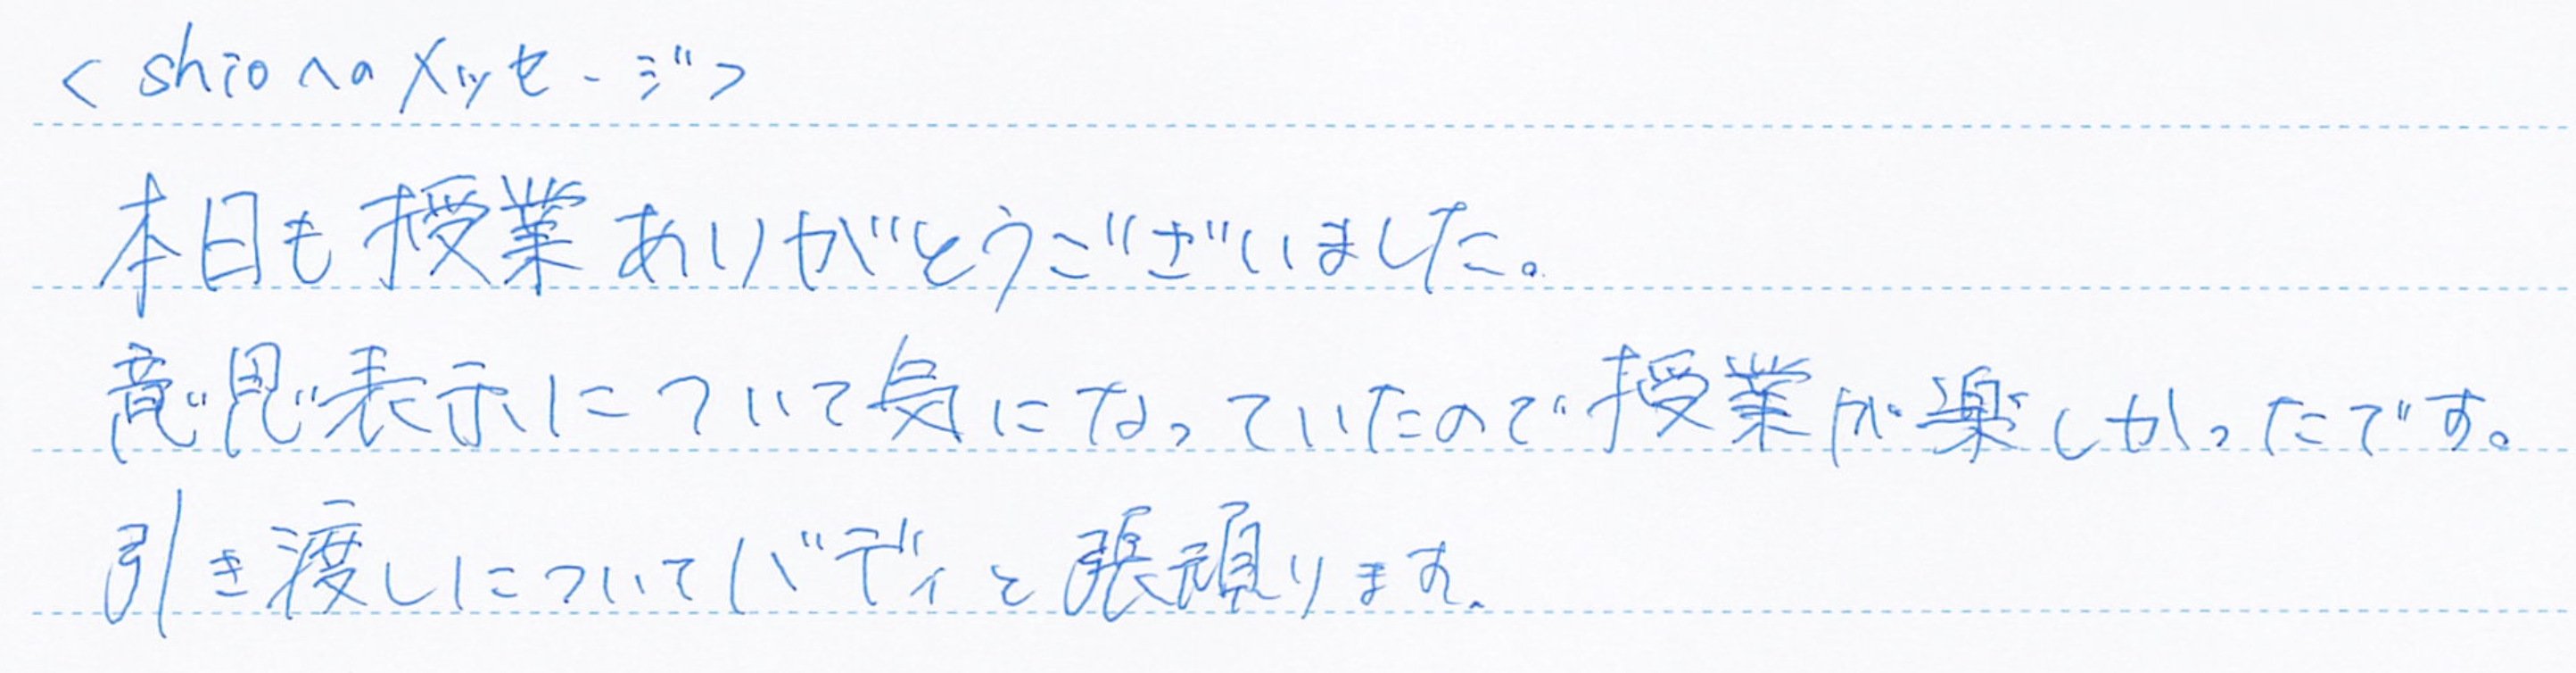 <shioへのメッセージ>
本日も授業ありがとうございました。
意思表示について気になっていたので授業が楽しかったです。
引き渡しについてバディと張頑ります。